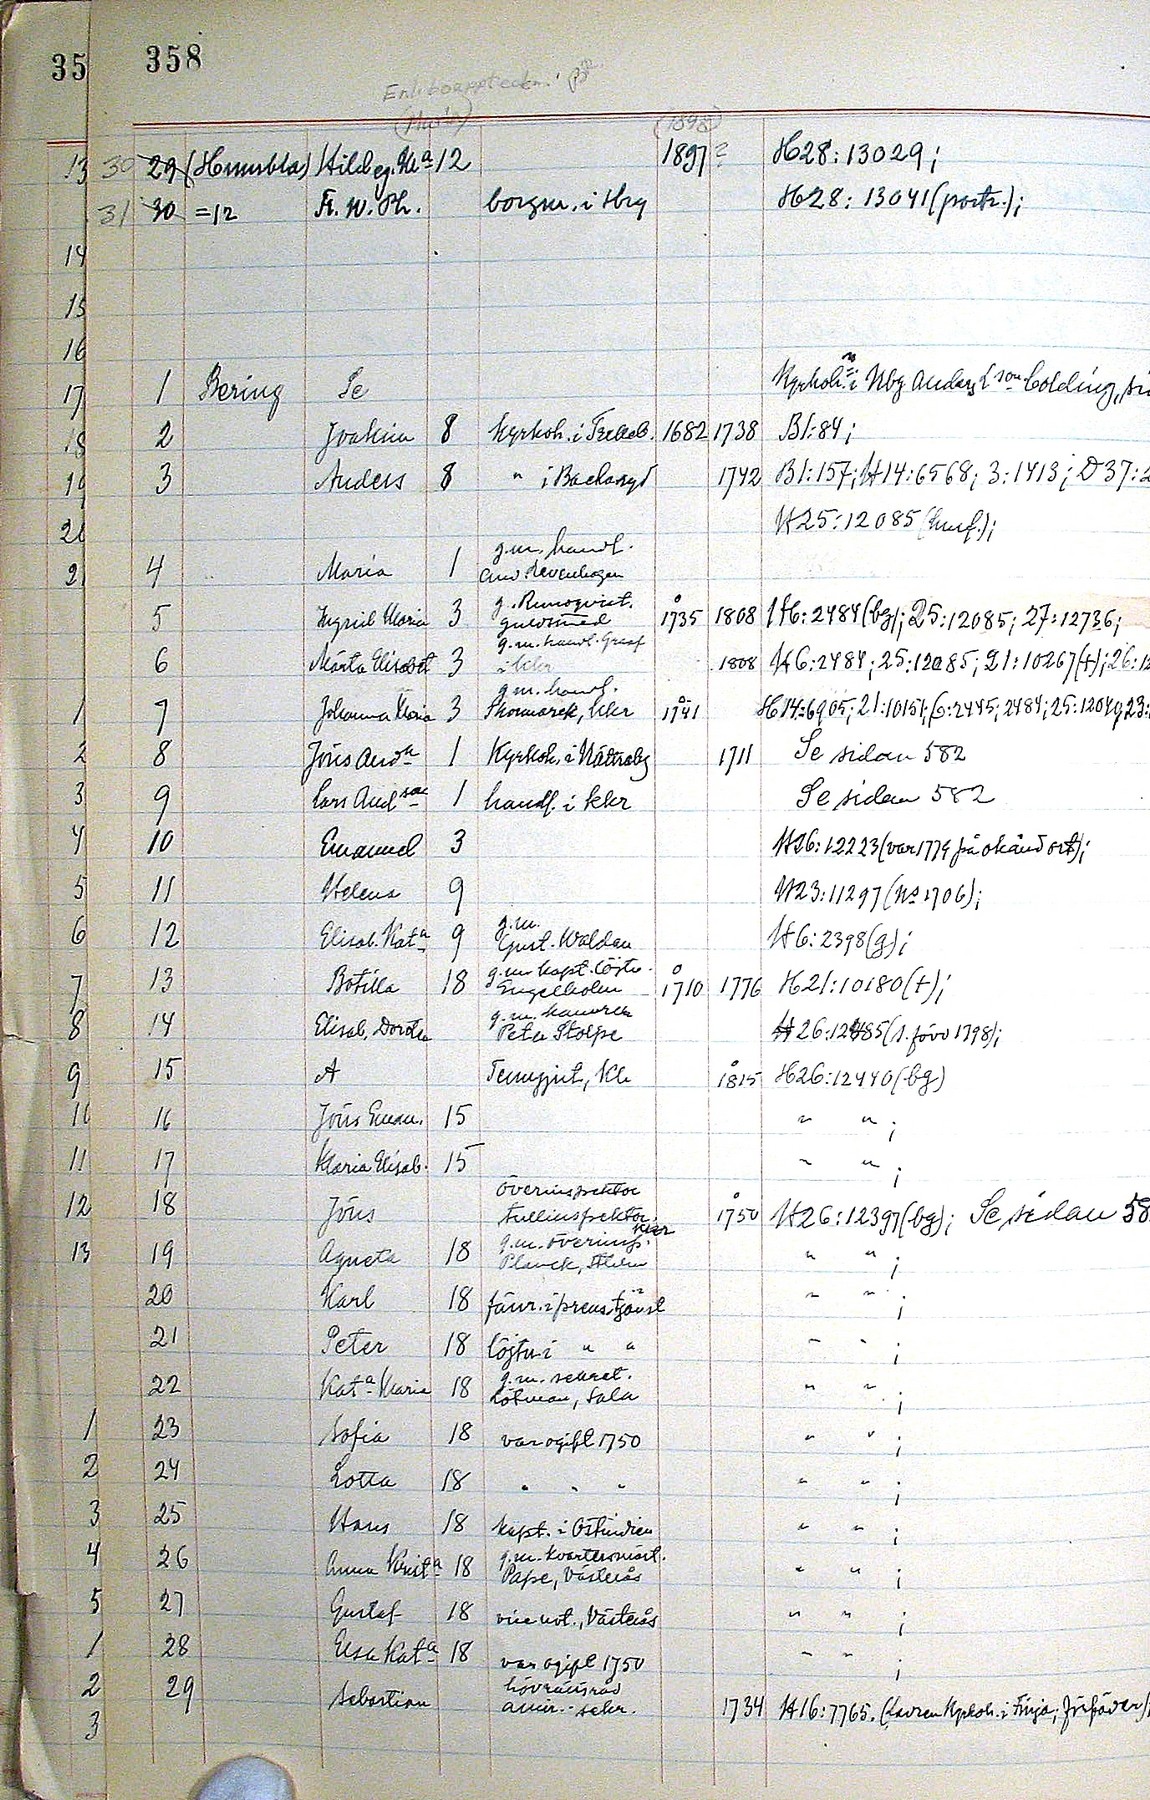 35 358
13 30 29 Hild eg. Ma 12 1897? H28:13029;
(1898)
31 30 =12 Fr. W. Ph. borgm. i Hbg H28:13041 (portr.);
14
15
16
17 1 Bering Se Kyrkoh. i Nbg Anders Colding,
18 2 Joakim 8 Kyrkoh. i Trelleb. 1682 1738 B1:84;
19 3 Anders 8 " i 1742 B1:157; H14:6568; 3:1413; D37:2
20 H25:12085
21 4 Maria 1 g.m. handl. And.
5 Ingrid Maria 3 g. Runqvist, guldsmed 1735 1808 H6:2484 (bg); 25:12085; 27:12736;
6 Märta Elisabet 3 g.m. handl. Graaf i kkr 1808 H6:2484; 25:12085; 21:10267 (†); 26:12
1 7 Johanna Maria 3 g.m. handl. kkr 1741 H14:6905; 21:10151; 6:2445, 2484; 25:12049; 23:
2 8 Jöns Andn 1 Kyrkoh. i Nättraby 1711 Se sidan 582
3 9 Lars Andson 1 handl. i kkr Se sidan 582
4 10 Emanuel 3 H26:12223 (var 1774 på okänd ort);
5 11 Helena 9 H23:11297 (No 1706);
6 12 Elisab. Kata 9 g.m. Gust. Waldau H6:2398 (g);
7 13 Botilla 18 g.m. kapt. löjtn. Engelholm 1710 1776 H21:10180 (†);
8 14 Elisab. Dorotea g.m. Peter Stolpe H26:12485 (s. före 1798);
9 15 A 1815 H26:12440 (bg)
10 16 Jöns Eman. 15 " " ;
11 17 Maria Elisab. 15 " " ;
12 18 Jöns överinspektor tullinspektor kkr 1750 H26:12397 (bg); Se sidan 58
13 19 Agneta 18 g.m. överinsp. Planck, Sthlm " " ;
20 Karl 18 fänr. i preus. tjänst " " ;
21 Peter 18 löjtn. i " " " " ;
22 Kata Maria 18 g.m. sekret. Sala " " ;
1 23 Sofia 18 var ogift 1750 " " ;
2 24 Lotta 18 " " " " " ;
3 25 Hans 18 kapt. i Ostindien " " ;
4 26 Anna Krista 18 g.m. kvartersmäst. Pape, Västerås " " ;
5 27 Gustaf 18 vice not., Västerås " " ;
1 28 Elsa Kata 18 var ogift 1750 " " ;
2 29 Sebastian hovrättsråd amir.-sekr. 1734 H16:7765.
3